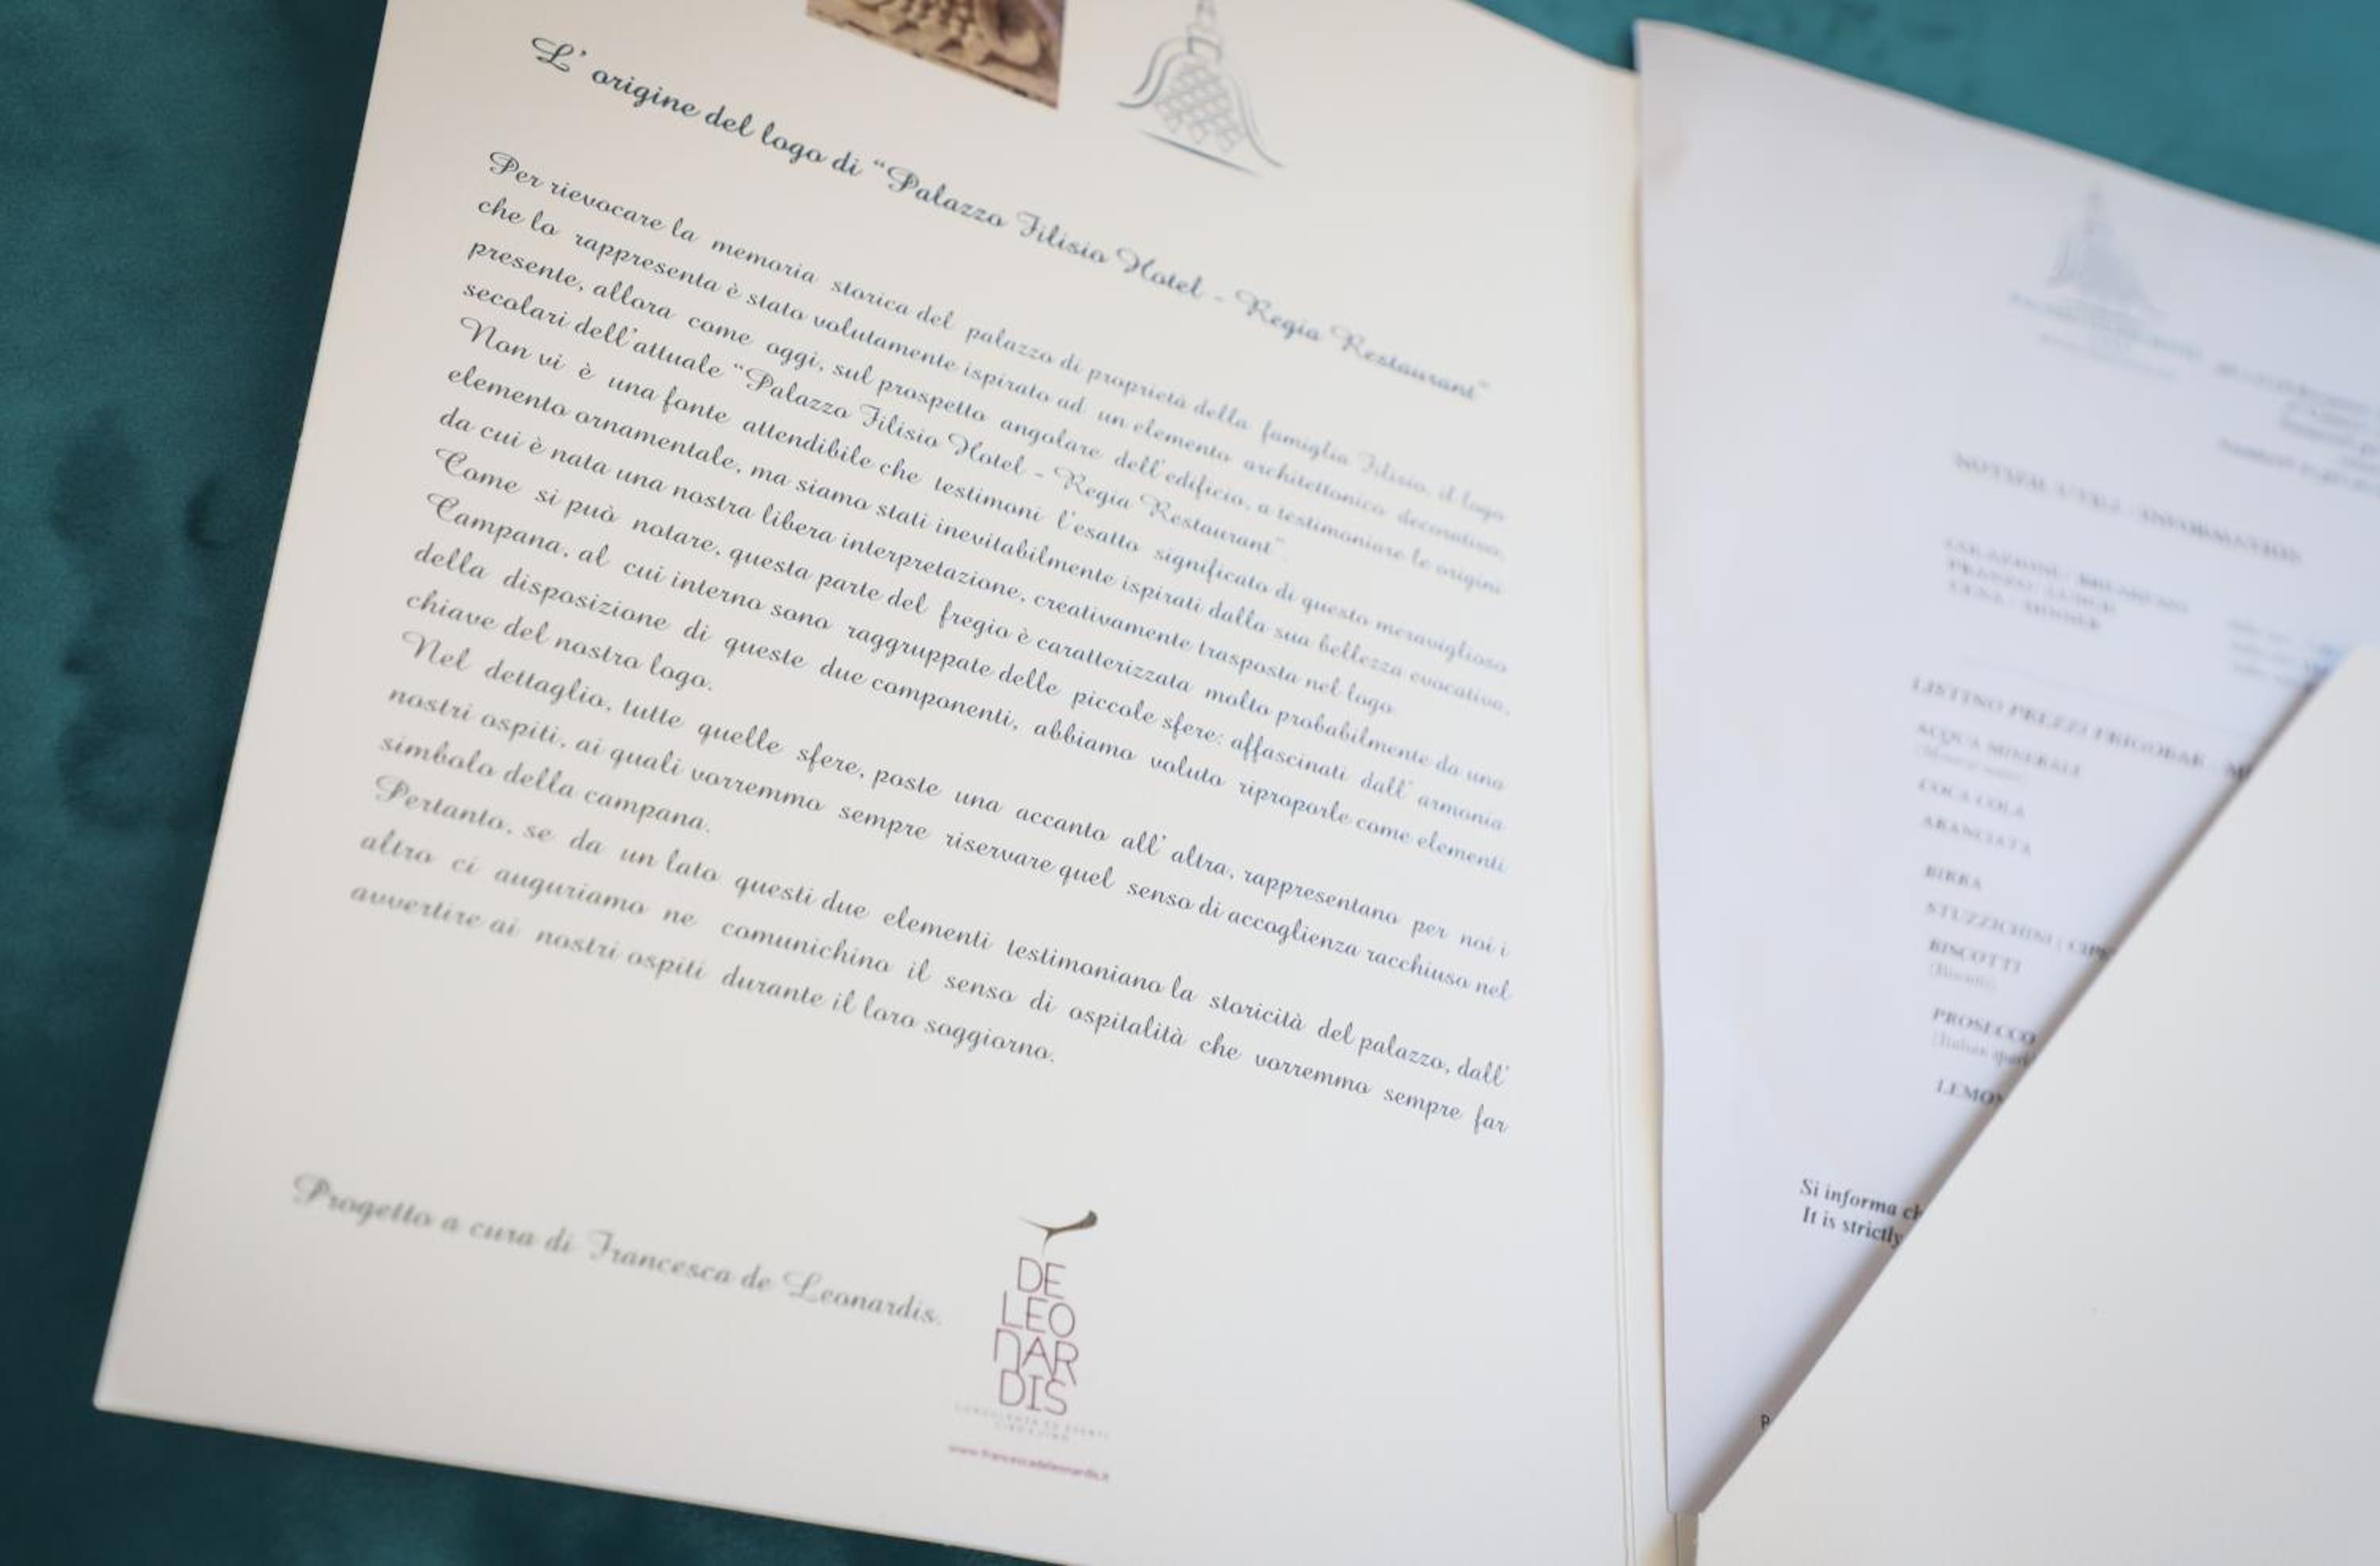 L' origine del logo di "Palazzo Filisio Hotel - Regia Restaurant"
Per rievocare la memoria storica del palazzo di proprietà della famiglia Filisio, il logo
che lo rappresenta è stato volutamente ispirato ad un elemento architettonico decorativo,
presente, allora come oggi, sul prospetto angolare dell'edificio, a testimoniare le origini
secolari dell'attuale "Palazzo Filisio Hotel - Regia Restaurant".
Non vi è una fonte attendibile che testimoni l'esatto significato di questo meraviglioso
elemento ornamentale, ma siamo stati inevitabilmente ispirati dalla sua bellezza evocativa,
da cui è nata una nostra libera interpretazione, creativamente trasposta nel logo.
Come si può notare, questa parte del fregio è caratterizzata molto probabilmente da una
Campana, al cui interno sono raggruppate delle piccole sfere: affascinati dall' armonia
della disposizione di queste due componenti, abbiamo voluto riproporle come elementi
chiave del nostro logo.
Nel dettaglio, tutte quelle sfere, poste una accanto all' altra, rappresentano per noi i
nostri ospiti, ai quali vorremmo sempre riservare quel senso di accoglienza racchiuso nel
simbolo della campana.
Pertanto, se da un lato questi due elementi testimoniano la storicità del palazzo, dall'
altro ci auguriamo ne comunichino il senso di ospitalità che vorremmo sempre far
avvertire ai nostri ospiti durante il loro soggiorno.
Progetto a cura di Francesca de Leonardis.
DE
LEO
NAR
DIS
www.francescadeleonardis.it
LISTINO PREZZI FRIGOBAR
ACQUA MINERALE
COCA COLA
ARANCIATA
BIRRA
STUZZICHINI
BISCOTTI
PROSECCO
Si informa
It is strictly